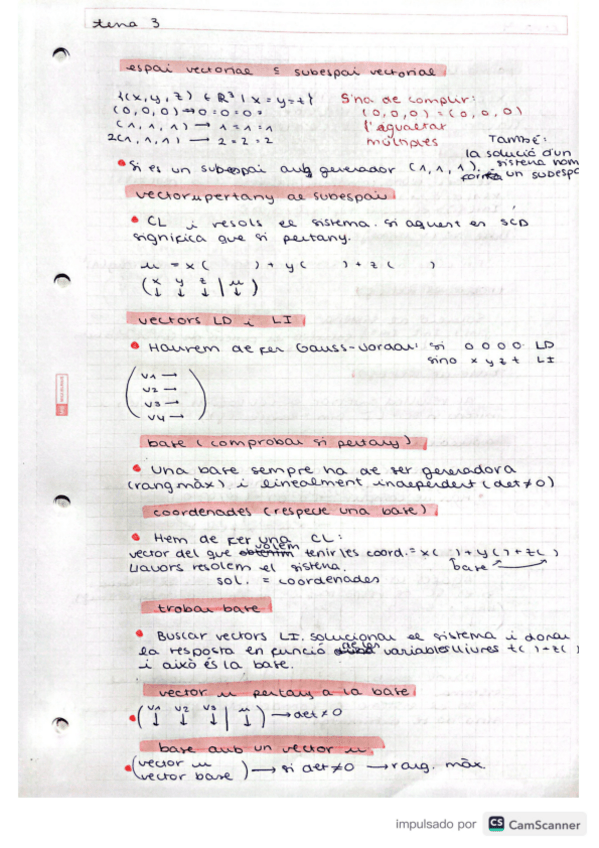 tema 3
espai vectorial i subespai vectorial
{(x, y, z) ∈ R³ | x = y = z}
(0, 0, 0) → 0 = 0 = 0
(1, 1, 1) → 1 = 1 = 1
2(1, 1, 1) → 2 = 2 = 2
S'ha de complir:
(0, 0, 0) = (0, 0, 0)
l'igualtat
múltiples
També:
la solució d'un
sistema hom
un subespa
• Si es un subespai amb generador (1, 1, 1).
vector u pertany al subespai
• CL i resols el sistema. Si aquest es SCD
significa que si pertany.
u = x( ) + y( ) + z( )
(x y z | u)
↓ ↓ ↓ ↓
vectors LD i LI
• Haurem de fer Gauss-Jordan: si 0 0 0 0 LD
sino x y z t LI
v1 →
v2 →
v3 →
v4 →
base (comprobar si pertany)
• Una base sempre ha de ser generadora
(rang màx) i linealment independent (det ≠ 0)
coordenades (respecte una base)
• Hem de fer una CL:
vector del que volem tenir les coord. = x( ) + y( ) + z( )
llavors resolem el sistema.
base
sol. = coordenades
trobar base
• Buscar vectors LI. solucionar el sistema i donar
la resposta en funció de les variables lliures t( ) + z( )
i això és la base.
vector u pertany a la base
• (v1 v2 v3 | u) → det ≠ 0
↓ ↓ ↓ ↓
base amb un vector u
• (vector u
vector base) → si det ≠ 0 → rang. màx.
impulsado por CS CamScanner